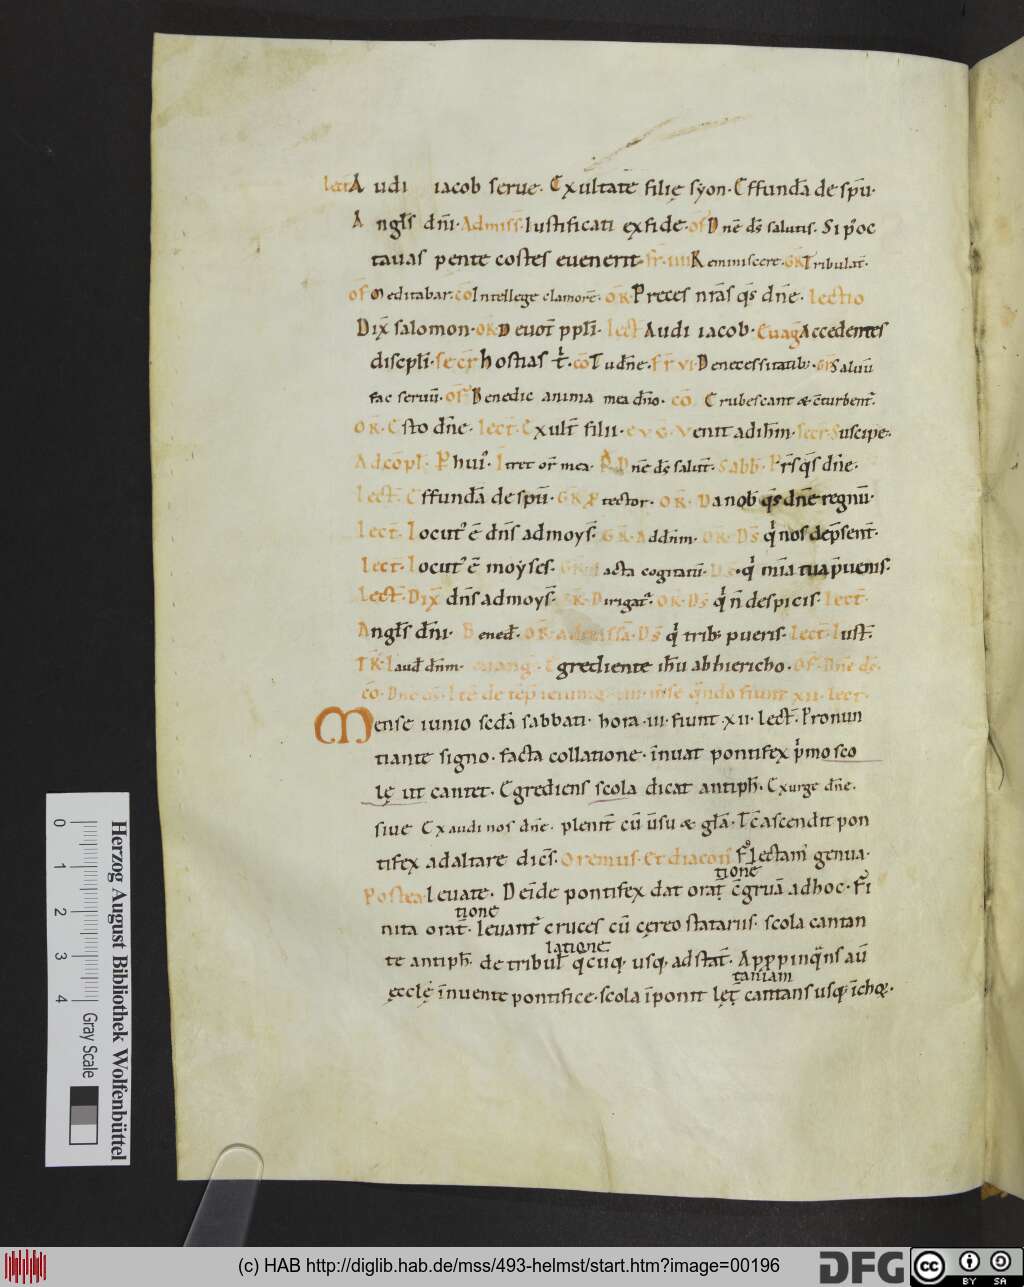 lect Audi iacob serue. Exultate filię syon. Effundā de spū.
Angl̄s dn̄i. Admiss̄. Iustificati ex fide. of Dn̄e ds̄ salutis. Si p̾ oc
tauas pentecostes euenerit. fr̄. iiii Reminiscere. GR Tribulat̄.
of Meditabar. cō Intellege clamorē. OR̄. Preces nr̄as qs̄ dn̄e. lectio
Dix̄ salomon. OR̄. Deuot̄ ppli̅. lect̄ Audi iacob. Euāg Accedentes
discipli̅. secr̄ hostias t̄. cō Tu dn̄e. fr̄ vi. De necessitatib;. GR Saluū
fac seruū. of Benedic anima mea dn̄o. cō. Erubescant & c̄turbent̾.
OR̄. Esto dn̄e. lect̄. Exult̄ filii. evḠ. Venit ad ih̄m. secr̄. Suscipe.
Ad cōpl̄. P huī. Itret or̄ mea. Dn̄e ds̄ salut̄. Sabb̄. Prs̄ qs̄ dn̄e.
lect̄. Effundā de spū. GR Ptector. OR̄. Da nob̄ qs̄ dn̄e regnū.
lect̄. locut̾ ē dn̄s ad moys̄. GR. Ad dn̄m. OR̄. Ds̄ q̇ nos dep̄sent̄.
lect̄. locut̾ ē moẏses. GR. Iacta cogitatū. Ds̄. q̇ mīa tua p̄uenis.
lect̄. Dix̄ dn̄s ad moys̄. GR. Dirigat̾. OR̄. Ds̄ q̇ n̄ despicis. lect̄.
Angl̄s dn̄i. Bened̄. OR̄. admissā. Ds̄ q̇ trib; pueris. lect̄. Iust̄.
TR̄. laud̄ dn̄m. euang̅. Egrediente ih̄u ab hiericho. Of. Dn̄e ds̄.
cō. Dn̄e ds̄. Itē de tēp̄ ieiuniū. iiii mēse qn̄do fiunt xii. lect̄.
Mense iunio sc̄da sabbati. hora. iii. fiunt. xii. lect̄. Pronun
tiante signo. facta collatione. īnuat pontifex p̄mo sco
lę ut cantet. Egrediens scola dicat antiph̄. Exurge dn̄e.
siue Exaudi nos dn̄e. plenit̄ cū ūsu & glā. Tc̄ ascendit pon
tifex ad altare dicēs. Oremus. Et diacon̄ Flectam̾ genua.
tionē
Postea leuate. Deīde pontifex dat orat̄ c̄gruā ad hoc. Fi
tione
nita orat̄. leuant̾ cruces cū cęreo statariis. scola cantan
latione
te antiph̄. de tribul̄ q̄cūq; usq; ad stat̄. Apppinq̄ns aū
taniam
ęcclę īnuente pontifice. scola īponit let̄ cantans usq; īchoę.
Herzog August Bibliothek Wolfenbüttel
Gray Scale
0 1 2 3 4
(c) HAB http://diglib.hab.de/mss/493-helmst/start.htm?image=00196
DFG
cc BY SA